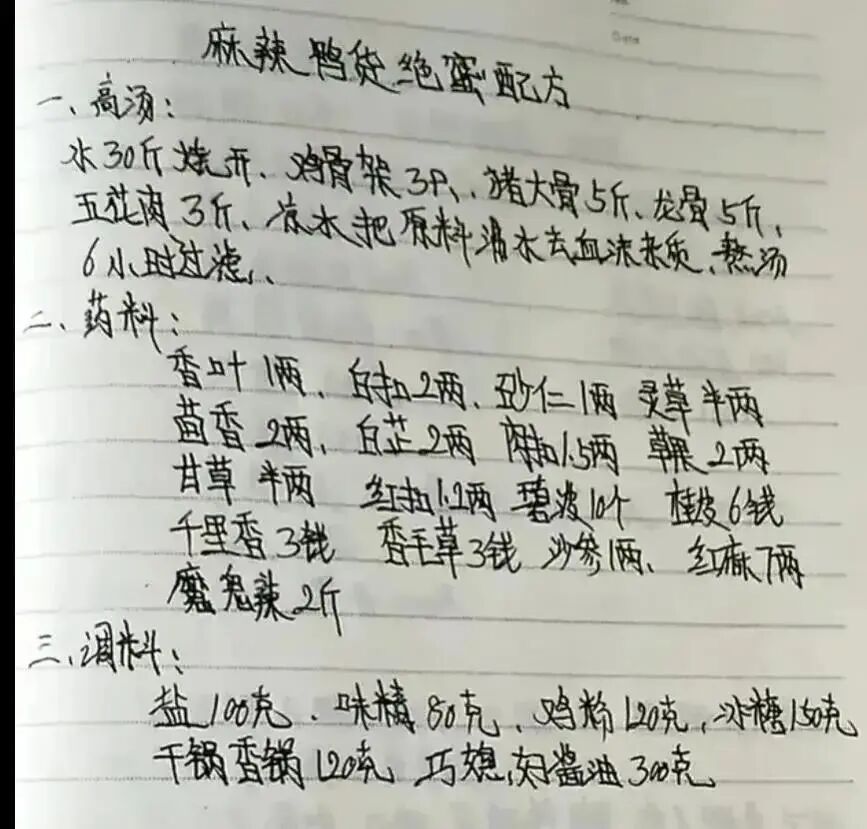 麻辣鸭货绝蜜配方
一、高汤:
水30斤烧开、鸡骨架3P、、猪大骨5斤、龙骨5斤、
五花肉3斤、凉水把原料沸水去血沫杂质、熬汤
6小时过滤、、
二、药料:
香叶1两、白扣2两、砂仁1两 灵草半两
茴香2两、白芷2两 肉扣1.5两 草果2两
甘草半两 红扣1.2两 荜波10个 桂皮6钱
千里香3钱 香毛草3钱 沙参1两、红麻7两
魔鬼辣2斤
三、调料:
盐100克、味精80克、鸡粉120克、冰糖150克
干锅香锅120克 巧媳妇酱油300克